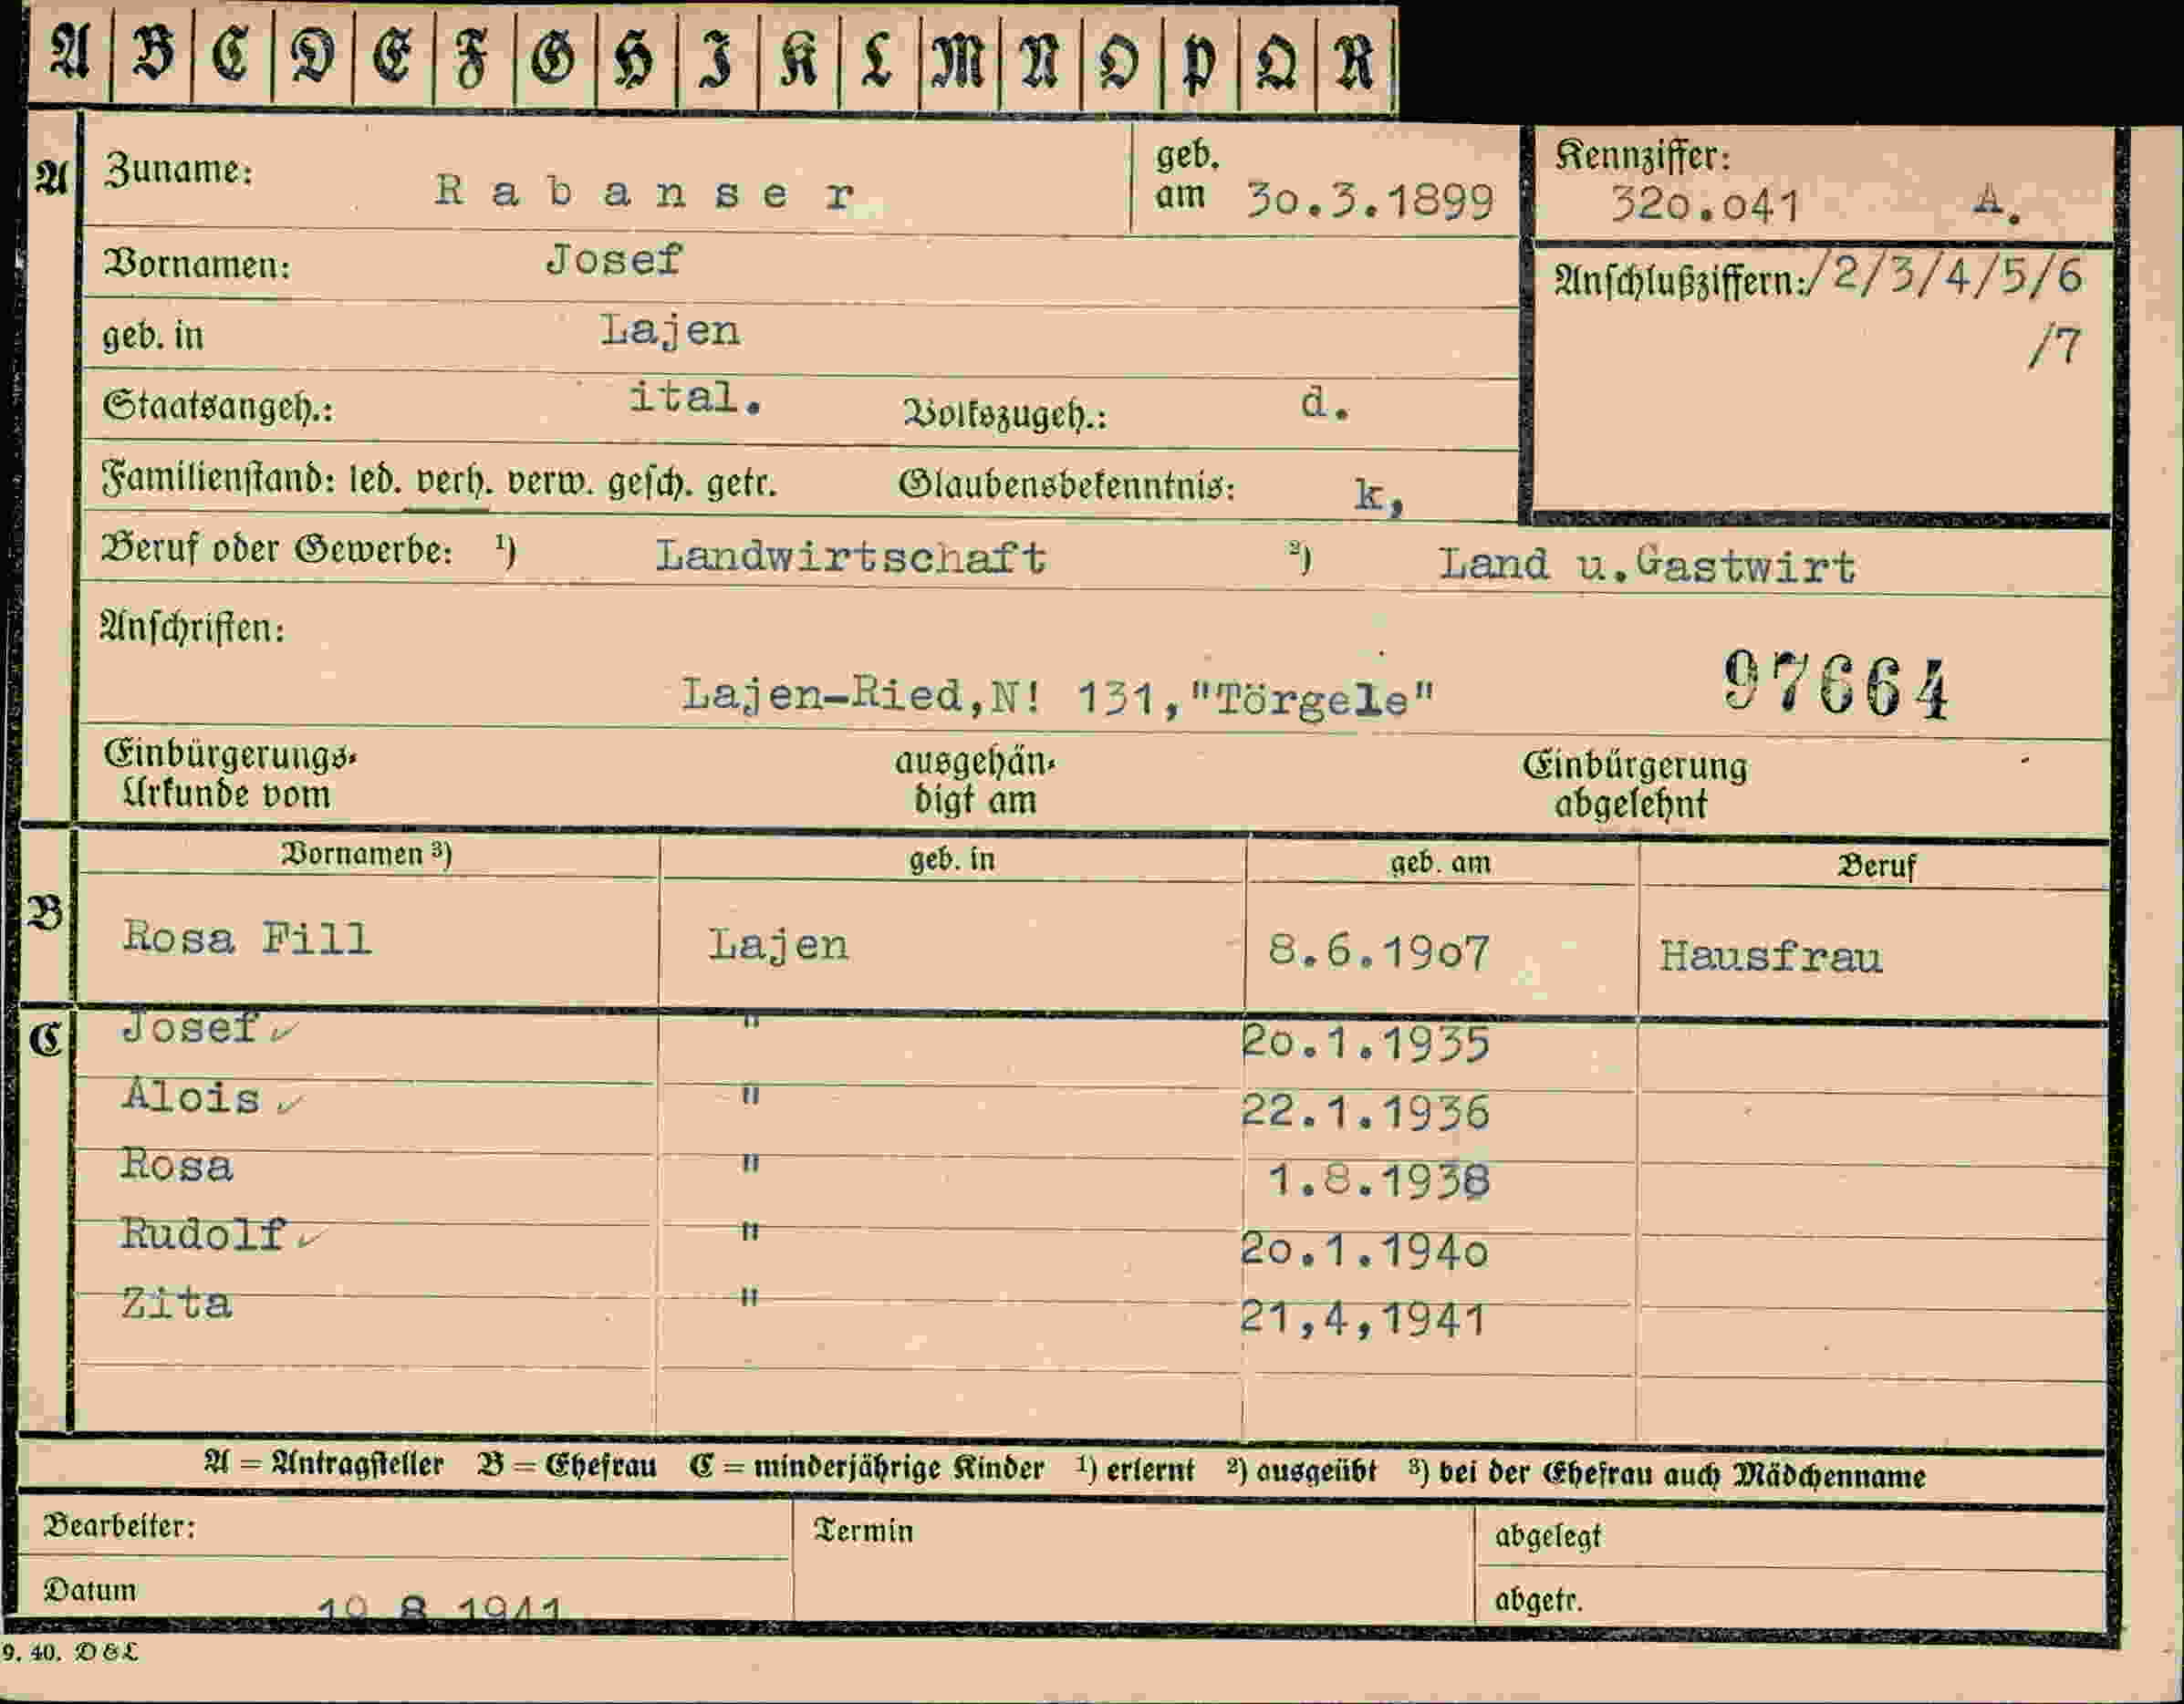 A B C D E F G H I K L M N O P Q R
A Zuname: Rabanser geb. am 30.3.1899 Kennziffer: 320.041 A.
Vornamen: Josef Anschlußziffern:/2/3/4/5/6
/7
geb. in Lajen
Staatsangeh.: ital. Volkszugeh.: d.
Familienstand: led. verh. verw. gesch. getr. Glaubensbekenntnis: k,
Beruf oder Gewerbe: ¹) Landwirtschaft ²) Land u.Gastwirt
Anschriften:
Lajen-Ried,N! 131,"Törgele" 97664
Einbürgerungs- ausgehän- Einbürgerung
Urkunde vom digt am abgelehnt
Vornamen ³) geb. in geb. am Beruf
B Rosa Fill Lajen 8.6.1907 Hausfrau
C Josef ✓ " 20.1.1935
Alois ✓ " 22.1.1936
Rosa " 1.8.1938
Rudolf ✓ " 20.1.1940
Zita " 21,4,1941
A = Antragsteller B = Ehefrau C = minderjährige Kinder ¹) erlernt ²) ausgeübt ³) bei der Ehefrau auch Mädchenname
Bearbeiter: Termin abgelegt
Datum 19 8 1941 abgetr.
9. 40. D&L